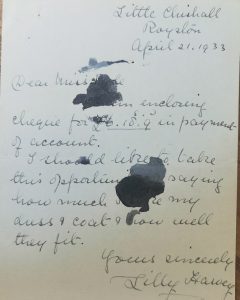 Little Chishall
Royston
April 21. 1933
Dear Miss
enclosing
cheque for in payment
of account.
I should like to take
this saying
how much my
dress & coat & how well
they fit.
Yours sincerely
Lilly Harvey